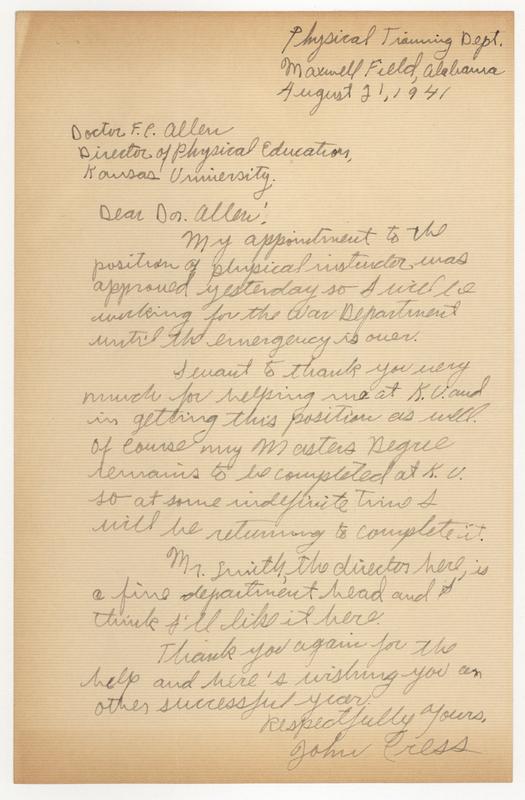 Physical Training Dept.
Maxwell Field, Alabama
August 21, 1941
Doctor F.C. Allen
Director of Physical Education,
Kansas University.
Dear Dr. Allen:
My appointment to the
position of physical instructor was
approved yesterday so I will be
working for the War Department
until the emergency is over.
I want to thank you very
much for helping me at K.U. and
in getting this position as well.
Of course my Masters Degree
remains to be completed at K.U.
so at some indefinite time I
will be returning to complete it.
Mr. Smith, the director here, is
a fine department head and I
think I'll like it here.
Thank you again for the
help and here's wishing you an
other successful year.
Respectfully Yours,
John Cress